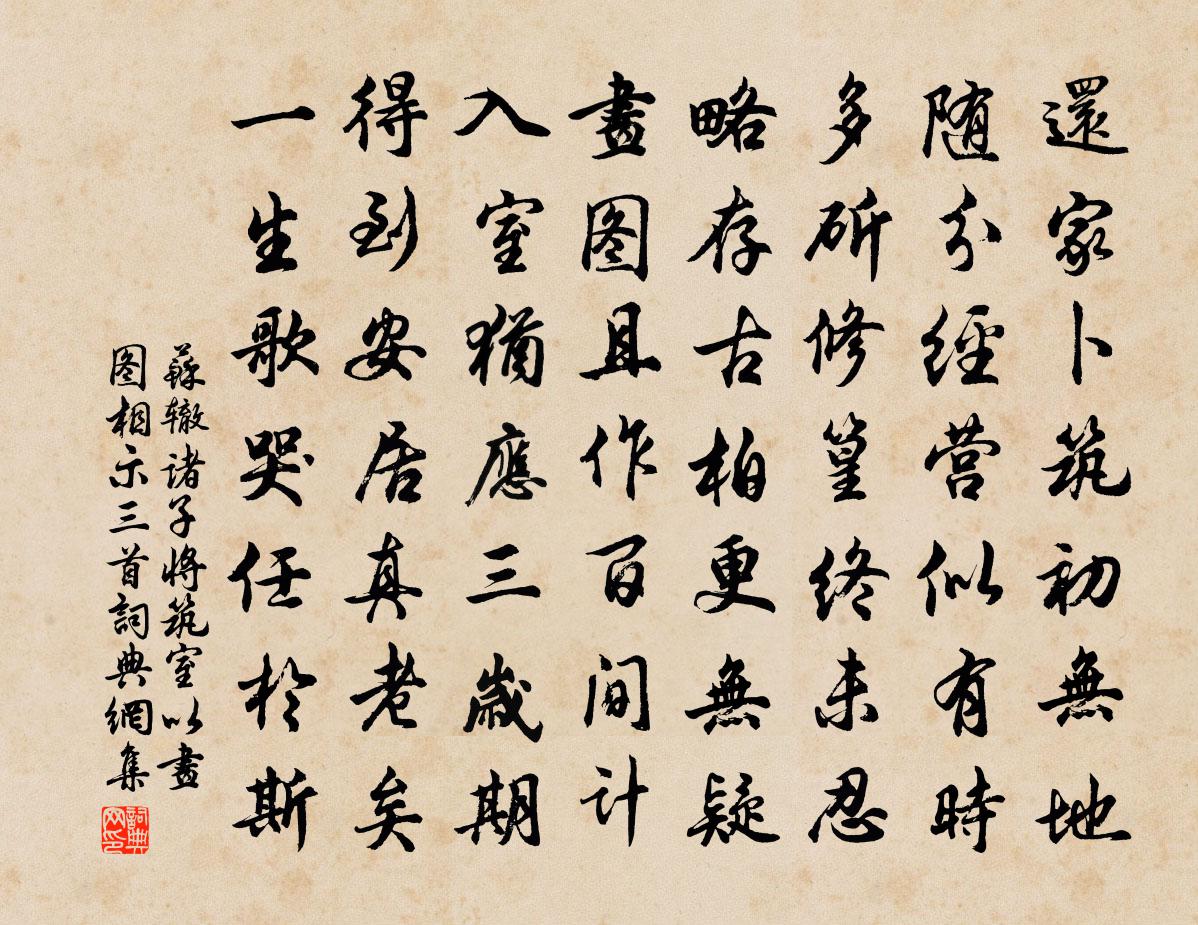 還家卜筑初無地
随分經营似有時
多斫修篁终未忍
略存古柏更無疑
畫图且作百间计
入室猶應三歲期
得到安居真老矣
一生歌哭任於斯
蘇辙诸子將筑室以畫
图相示三首詞典網集
詞典
网印